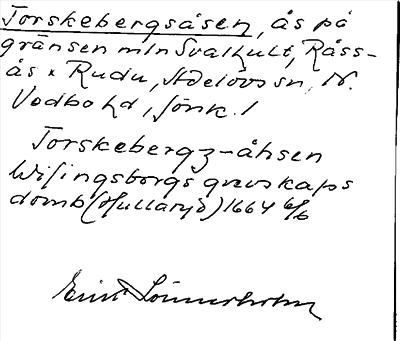 Torskebergsåsen, ås på
gränsen mln Svalhult, Råss-
ås o Rudu, Adelövs sn, N.
Vedbo hd, Jönk. l
Torskebergz-åhsen
Wisingsborgs grevskaps
domb (Hullaryd) 1664 6/6
Einar Lönnerholm